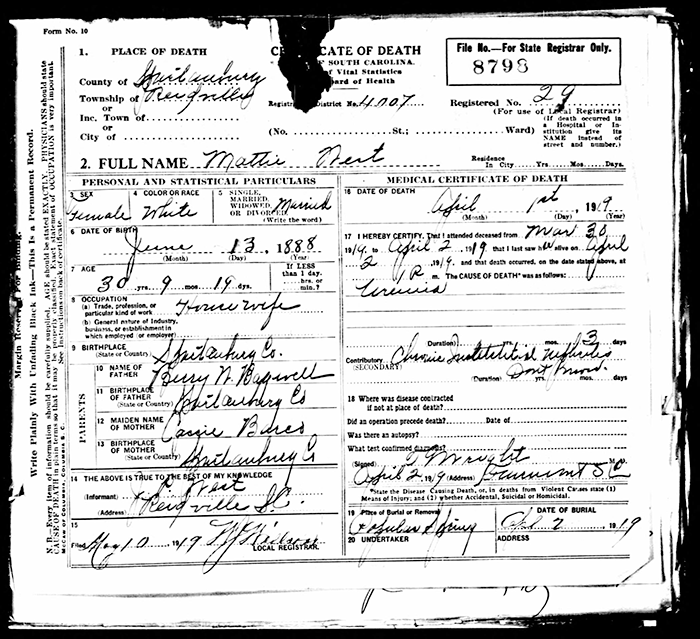 Form No. 10
1. PLACE OF DEATH
County of Spartanburg
Township of Reidville
or
Inc. Town of
or
City of
CERTIFICATE OF DEATH
OF SOUTH CAROLINA.
of Vital Statistics
Board of Health
Registration District No. 4007
(No. St.; Ward)
File No.—For State Registrar Only.
8798
Registered No. 29
(For use of Local Registrar)
(If death occurred in a Hospital or Institution give its NAME instead of street and number.)
2. FULL NAME Mattie West
Residence In City Yrs. Mos. Days.
PERSONAL AND STATISTICAL PARTICULARS
3 SEX
Female
4 COLOR OR RACE
White
5 SINGLE, MARRIED, WIDOWED, OR DIVORCED
(Write the word)
Married
6 DATE OF BIRTH
June 13, 1888
7 AGE
30 yrs. 9 mos. 19 ds.
If LESS than 1 day, hrs. or min.?
8 OCCUPATION
(a) Trade, profession, or particular kind of work
Housewife
(b) General nature of Industry, business, or establishment in which employed or employer)
9 BIRTHPLACE
(State or Country) Spartanburg Co.
PARENTS
10 NAME OF FATHER Berry N. Bagwell
11 BIRTHPLACE OF FATHER
(State or Country) Spartanburg Co
12 MAIDEN NAME OF MOTHER
13 BIRTHPLACE OF MOTHER
(State or Country) Spartanburg Co
14 THE ABOVE IS TRUE TO THE BEST OF MY KNOWLEDGE
(Informant) West
(Address) Reidville S.C.
15
Filed May 10 1919
LOCAL REGISTRAR.
MEDICAL CERTIFICATE OF DEATH
16 DATE OF DEATH
April 1st, 1919
(Month) (Day) (Year)
17 I HEREBY CERTIFY, That I attended deceased from Mar 30
1919 to April 2 1919 that I last saw h alive on April
2, 1919, and that death occurred, on the date stated above, at
1 P m. The CAUSE OF DEATH* was as follows:
Uremia
(Duration) yrs. mos. 3 ds.
Contributory Chronic Interstitial Nephritis
(SECONDARY)
(Duration) Dont know.
18 Where was disease contracted
if not at place of death?
Did an operation precede death? Date of
Was there an autopsy?
What test confirmed diagnosis?
(Signed) Wright M.D.
April 2 1919 (Address) S C
*State the Disease Causing Death, or, in deaths from Violent Causes state (1) Means of Injury; and (2) whether Accidental, Suicidal or Homicidal.
19 Place of Burial or Removal
DATE OF BURIAL
2 1919
20 UNDERTAKER
ADDRESS
Margin Reserved for Binding.
Write Plainly With Unfading Black Ink—This is a Permanent Record.
N. B.—Every item of information should be carefully supplied. AGE should be stated EXACTLY. PHYSICIANS should state
CAUSE OF DEATH in plain terms so that it may be properly classified. Exact statement of OCCUPATION is very important.
See instructions on back of certificate.